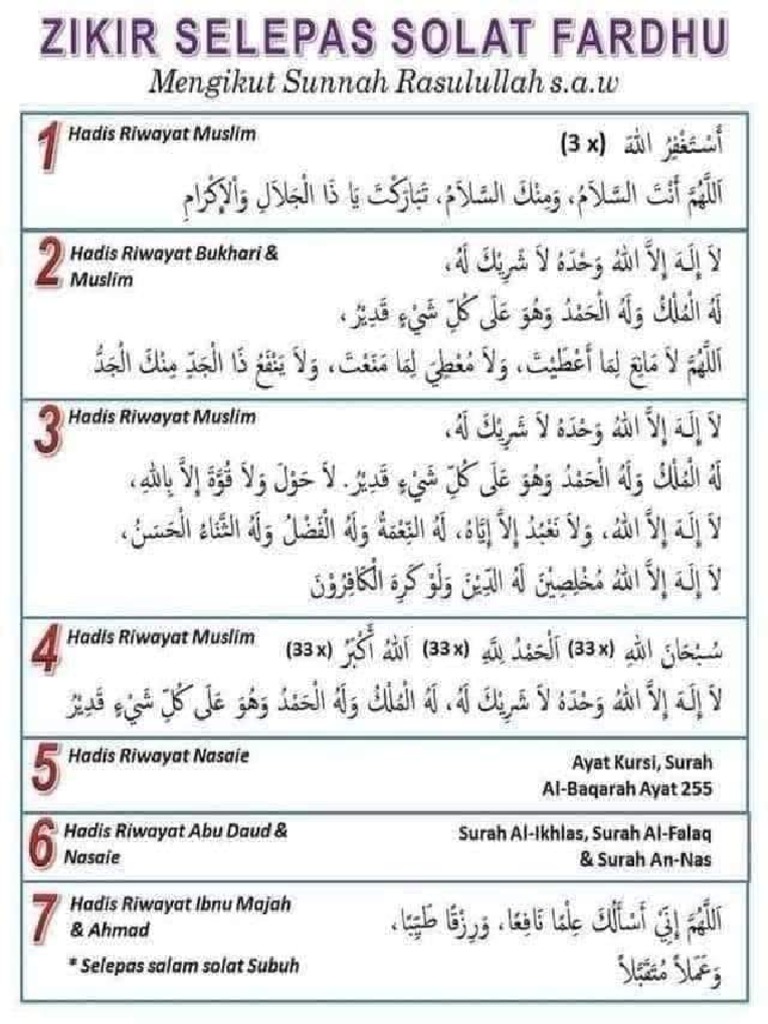 ZIKIR SELEPAS SOLAT FARDHU
Mengikut Sunnah Rasulullah s.a.w
1 Hadis Riwayat Muslim
أَسْتَغْفِرُ اللهَ (3 x)
اَللَّهُمَّ أَنْتَ السَّلاَمُ، وَمِنْكَ السَّلاَمُ، تَبَارَكْتَ يَا ذَا الْجَلاَلِ وَالْإِكْرَامِ
2 Hadis Riwayat Bukhari &
Muslim
لاَ إِلَهَ إِلاَّ اللهُ وَحْدَهُ لاَ شَرِيْكَ لَهُ،
لَهُ الْمُلْكُ وَلَهُ الْحَمْدُ وَهُوَ عَلَى كُلِّ شَيْءٍ قَدِيْرُ،
اَللَّهُمَّ لاَ مَانِعَ لِمَا أَعْطَيْتَ، وَلاَ مُعْطِيَ لِمَا مَنَعْتَ، وَلاَ يَنْفَعُ ذَا الْجَدِّ مِنْكَ الْجَدُّ
3 Hadis Riwayat Muslim
لاَ إِلَهَ إِلاَّ اللهُ وَحْدَهُ لاَ شَرِيْكَ لَهُ،
لَهُ الْمُلْكُ وَلَهُ الْحَمْدُ وَهُوَ عَلَى كُلِّ شَيْءٍ قَدِيْرُ. لاَ حَوْلَ وَلاَ قُوَّةَ إِلاَّ بِاللهِ،
لاَ إِلَهَ إِلاَّ اللهُ، وَلاَ نَعْبُدُ إِلاَّ إِيَّاهُ، لَهُ النِّعْمَةُ وَلَهُ الْفَضْلُ وَلَهُ الثَّنَاءُ الْحَسَنُ،
لاَ إِلَهَ إِلاَّ اللهُ مُخْلِصِيْنَ لَهُ الدِّيْنَ وَلَوْ كَرِهَ الْكَافِرُوْنَ
4 Hadis Riwayat Muslim
سُبْحَانَ اللهِ (33 x) اَلْحَمْدُ لِلَّهِ (33 x) اَللهُ أَكْبَرُ (33 x)
لاَ إِلَهَ إِلاَّ اللهُ وَحْدَهُ لاَ شَرِيْكَ لَهُ، لَهُ الْمُلْكُ وَلَهُ الْحَمْدُ وَهُوَ عَلَى كُلِّ شَيْءٍ قَدِيْرُ
5 Hadis Riwayat Nasaie
Ayat Kursi, Surah
Al-Baqarah Ayat 255
6 Hadis Riwayat Abu Daud &
Nasaie
Surah Al-Ikhlas, Surah Al-Falaq
& Surah An-Nas
7 Hadis Riwayat Ibnu Majah
& Ahmad
* Selepas salam solat Subuh
اَللَّهُمَّ إِنِّيْ أَسْأَلُكَ عِلْمًا نَافِعًا، وَرِزْقًا طَيِّبًا،
وَعَمَلاً مُتَقَبَّلاً